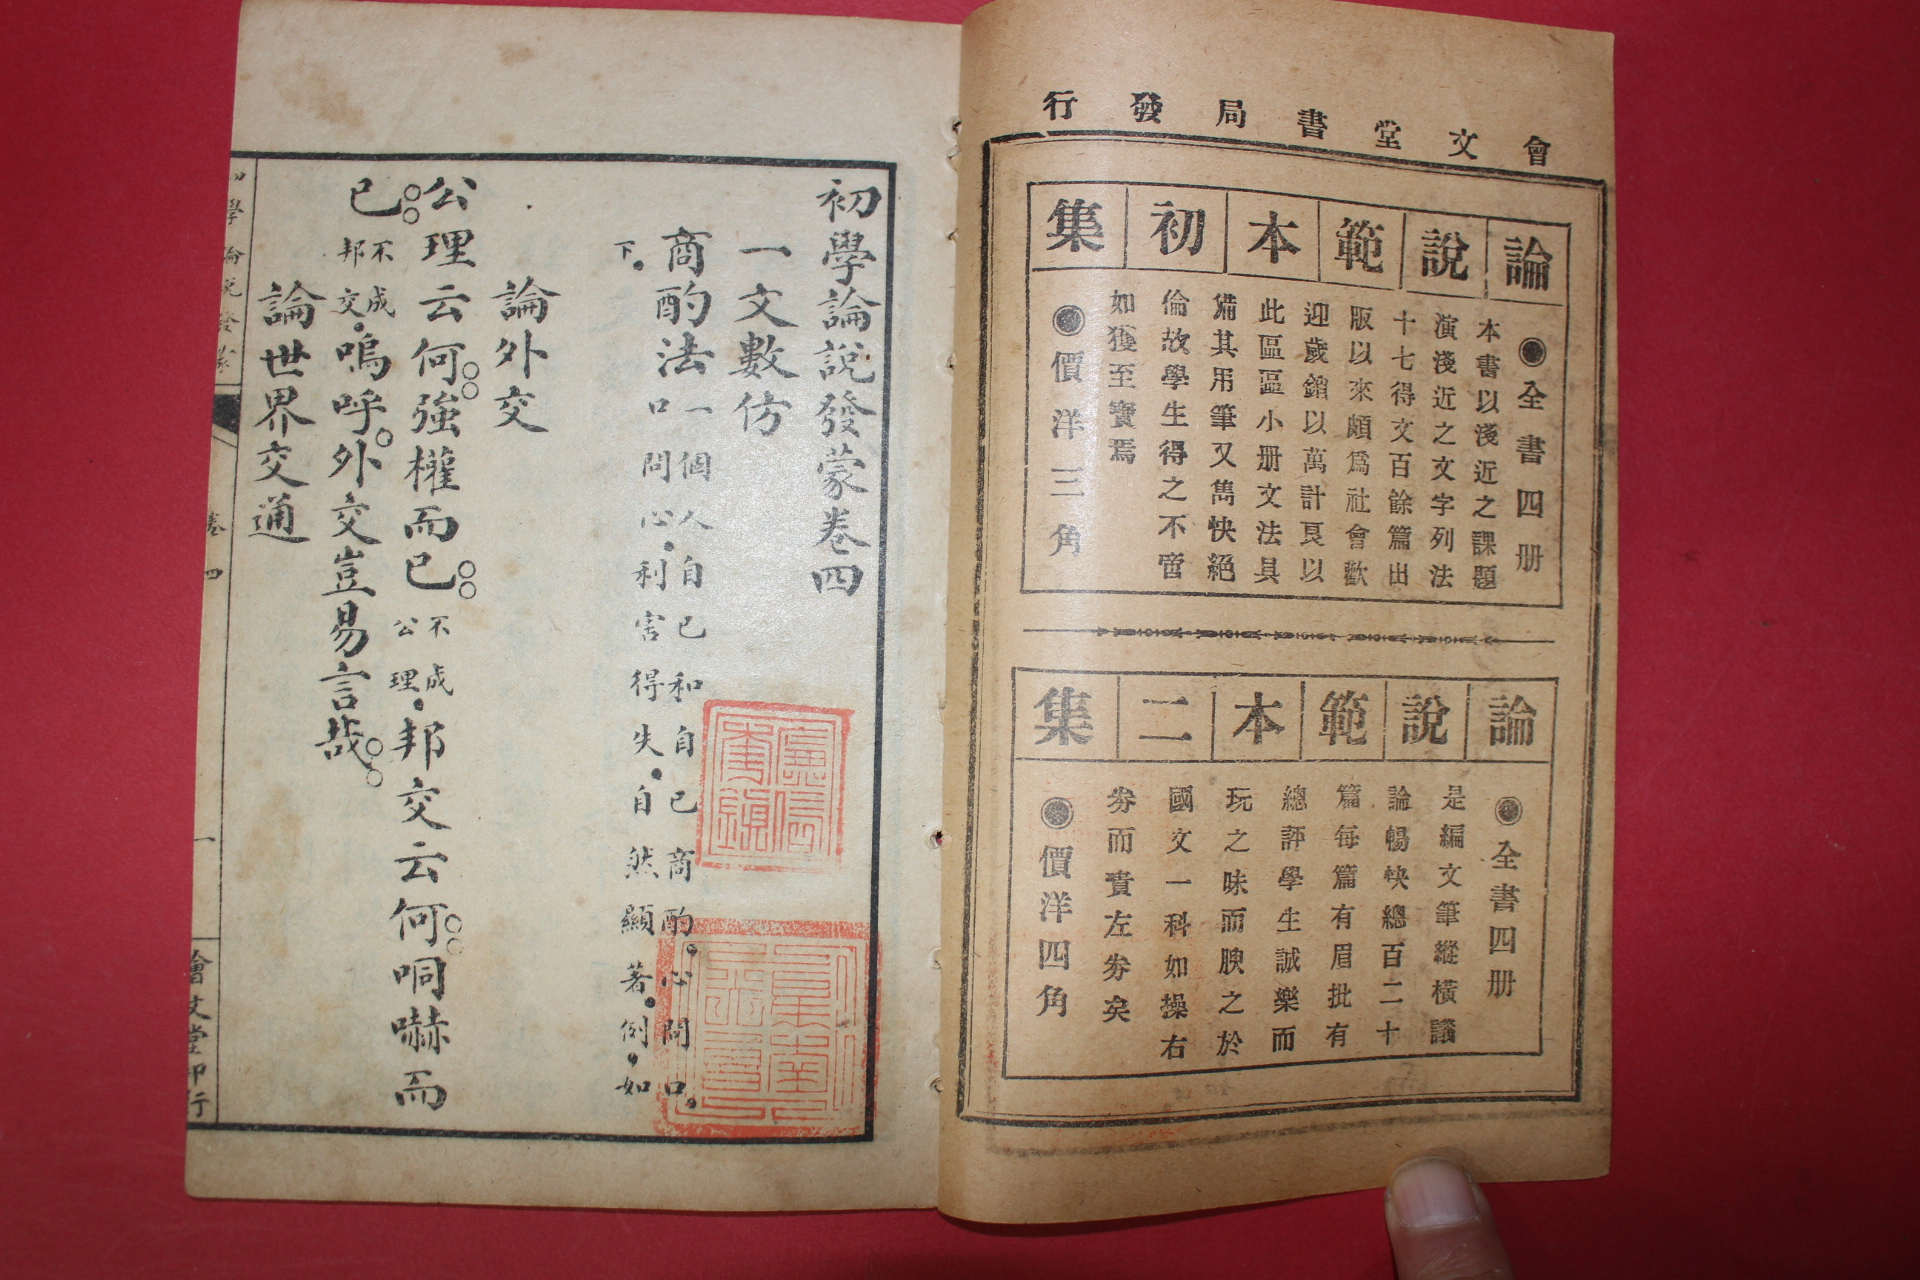 會文堂書局發行
論說範本初集
●全書四册
本書以淺近之課題
演淺近之文字列法
十七得文百餘篇出
版以來頗爲社會歡
迎歲銷以萬計良以
此區區小册文法具
備其用筆又雋快絕
倫故學生得之不啻
如獲至寶焉
●價洋三角
論說範本二集
●全書四册
是編文筆縱橫議
論暢快總百二十
篇每篇有眉批有
總評學生誠樂而
玩之味而腴之於
國文一科如操右
券而責左券矣
●價洋四角
初學論說發蒙卷四
一文數仿
商酌法
一個人自己和自己商酌。心問口。
口問心。利害得失。自然顯著。例。如
下。
論外交
公理云何。強權而已。不成公理。邦交云何。哃嚇而
已。不成邦交。嗚呼。外交豈易言哉。
論世界交通
初學論說發蒙
卷四
一
會文堂印行